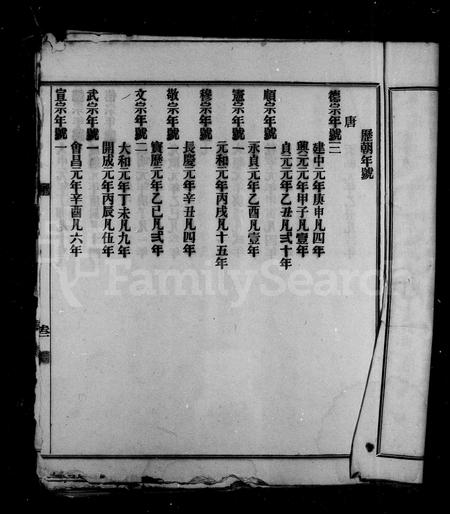 歷朝年號
唐
德宗年號三
建中元年庚申凡四年
興元元年甲子凡壹年
貞元元年乙丑凡弍十年
順宗年號一
永貞元年乙酉凡壹年
憲宗年號一
元和元年丙戌凡十五年
穆宗年號一
長慶元年辛丑凡四年
敬宗年號一
寶歷元年乙巳凡弍年
文宗年號二
大和元年丁未凡九年
開成元年丙辰凡伍年
武宗年號一
會昌元年辛酉凡六年
宣宗年號一
FamilySearch